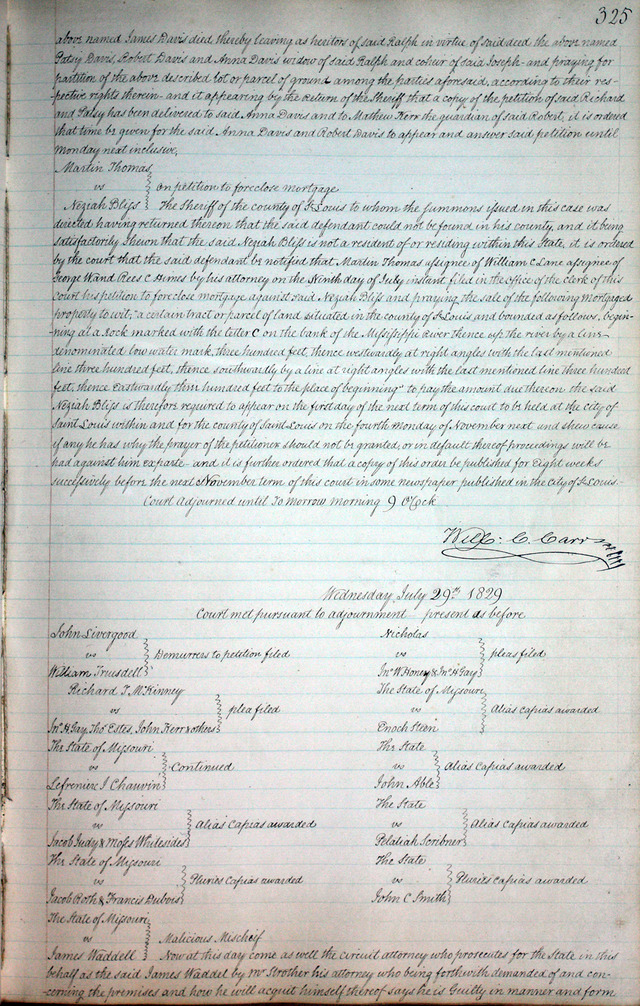 325
above named James Davis died thereby leaving as heritors of said Ralph in virtue of said deed the above named
Patsy Davis, Robert Davis and Anna Davis widow of said Ralph and coheir of said Joseph and praying for
partition of the above described lot or parcel of ground among the parties aforesaid, according to their res-
pective rights therein and it appearing by the return of the Sheriff that a copy of the petition of said Richard
and Patsy has been delivered to said Anna Davis and to Mathew Kerr the guardian of said Robert, it is ordered
that time be given for the said Anna Davis and Robert Davis to appear and answer said petition until
Monday next inclusive,
Martin Thomas
vs On petition to foreclose mortgage
Neziah Bliss The Sheriff of the county of St Louis to whom the summons issued in this case was
directed having returned thereon that the said defendant could not be found in his county, and it being
satisfactorily shewn that the said Neziah Bliss is not a resident of or residing within this State, it is ordered
by the court that the said defendant be notified that Martin Thomas assignee of William C Lane assignee of
George W and Rees C Himes by his attorney on the Ninth day of July instant filed in the office of the clerk of this
court his petition to foreclose mortgage against said Neziah Bliss and praying the sale of the following mortgaged
property to wit; "a certain tract or parcel of land situated in the county of St Louis and bounded as follows, begin-
ning at a Rock marked with the letter C on the bank of the Mississippi River thence up the river by a line
denominated low water mark, three hundred feet, thence westwardly at right angles with the last mentioned
line three hundred feet, thence southwardly by a line at right angles with the last mentioned line three hundred
feet, thence Eastwardly three hundred feet to the place of beginning" to pay the amount due thereon the said
Neziah Bliss is therefore required to appear on the first day of the next term of this court to be held at the city of
Saint Louis within and for the county of Saint Louis on the fourth Monday of November next and shew cause
if any he has why the prayer of the petitioner should not be granted, or in default thereof proceedings will be
had against him exparte and it is further ordered that a copy of this order be published for Eight weeks
successively before the next November term of this court in some newspaper published in the City of St Louis
Court Adjourned until To Morrow morning 9 O'Clock
Will: C. Carr
Wednesday July 29th 1829
Court met pursuant to adjournment present as before
John Livergood
vs Demurrers to petition filed
William Truisdell
Nicholas
vs pleas filed
Jno W Honey & Jno H Gay
Richard T. McKinney
vs plea filed
Jno. H Gay, Thos Estes, John Kerr & others
The State of Missouri
vs Alias Capias awarded
Enoch Steen
The State of Missouri
vs Continued
Lefreniere J Chauvin
The State
vs Alias Capias awarded
John Able
The State of Missouri
vs Alias Capias awarded
Jacob Judy & Moses Whitesides
The State
vs Alias Capias awarded
Pelatiah Scribner
The State of Missouri
vs Pluries Capias awarded
Jacob Roth & Francis Dubois
The State
vs Pluries Capias awarded
John C Smith
The State of Missouri
vs Malicious Mischeif
James Waddell Now at this day come as well the circuit attorney who prosecutes for the State in this
behalf as the said James Waddel by Mr Strother his attorney who being forthwith demanded of and con-
cerning the premises and how he will acquit himself thereof says he is Guilty in manner and form